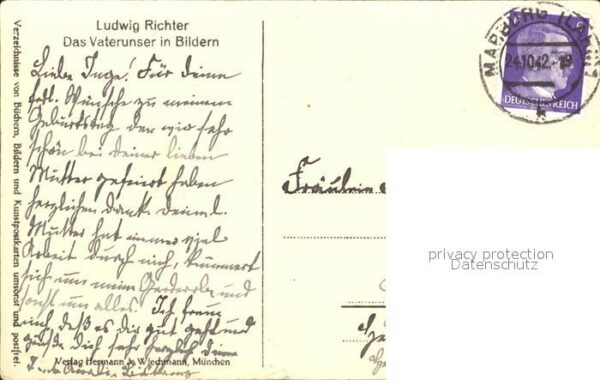 Ludwig Richter
Das Vaterunser in Bildern
Verzeichnisse von Büchern, Bildern und Kunstpostkarten umsonst und postfrei.
MARBURG (LAHN)
24.10.42.
DEUTSCHES REICH
Liebe Inge! Für deine
Wünsche zu meinem
Geburtstag den wir sehr
schön bei deiner lieben
Mutter gefeiert haben
herzlichen Dank. deine l.
Mutter hat immer viel
Arbeit durch mich, kümmert
sich um meine Garderobe und
sonst um alles. Ich freue
mich, daß es dir gut geht und
grüße dich sehr herzlich deine
Fräulein
privacy protection
Datenschutz
Verlag Hermann A. Wiechmann, München